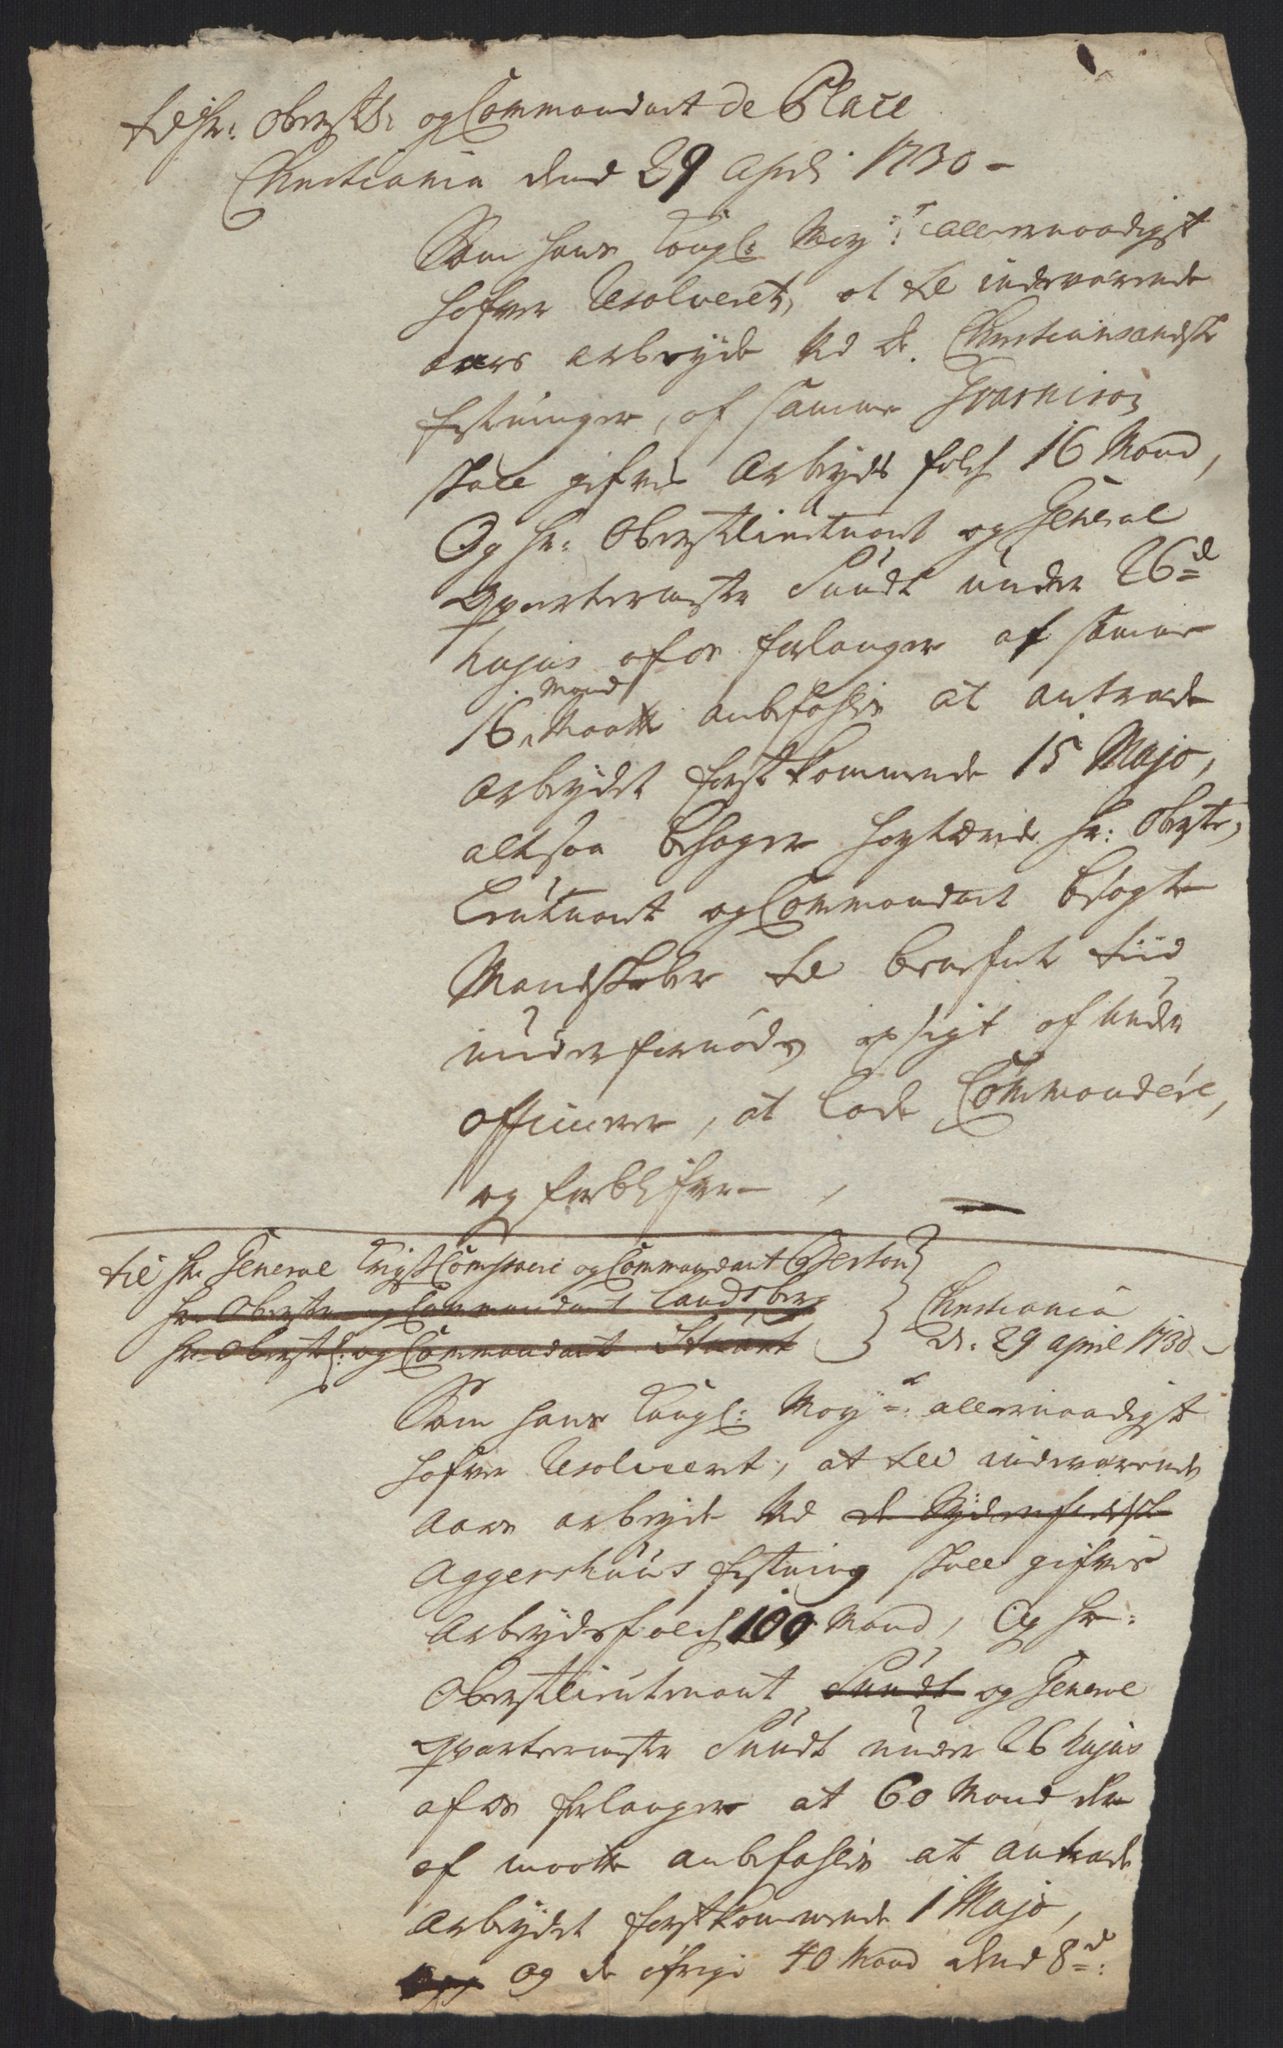 til Hr: Oberstl: og Commendant de Place
Christiania dend 29 april 1730 –
Som hans Kongl: May:t allernaadigst
hafver Resolveret, at til indeværende
aars arbeyde ved de Christiansandske
festninger, af samme Guarnison
skall gifves Arbeyds folch 16 Mand,
Og Hr: Oberstlieutnant og General
Qvartermester Sundt under 26d
hujus af os forlanger at samme
16 Mand Maatte anbefahles at antræde
arbeydet førstkommende 15 Majo,
altsaa behager høytærede Hr: Obrste,
Lieutnant og Commendant bemelte
Mandskaber til berørte tiid
under fornøden opsigt af under
officerer, at lade Commandere,
og forblifver
til Hr General Krigs Commissaire og Commendant Gerton
Hr Oberste og Commendant Landsberg
Hr Oberstl: og Commendant Stuart
Christiania
d. 29 april 1730
Som hans Kongl: May:t allernaadigst
hafver Resolveret, at till indeværende
Aars arbeyde ved de Sydenfieldske
Aggershuus festning skall gifves
Arbeydsfolch 100 Mand, Og Hr:
Oberstlieutenant Sundt og General
qvartermester Sundt under 26 hujus
af os forlanger at 60 Mand der
af maatte anbefahles at antræde
Arbeydet førstkommende 1 Majo,
og de øfrige 40 Mand dend 8de: